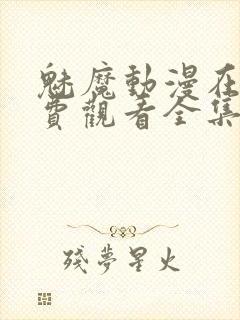 魅魔動漫在
費觀看全集
殘夢星火